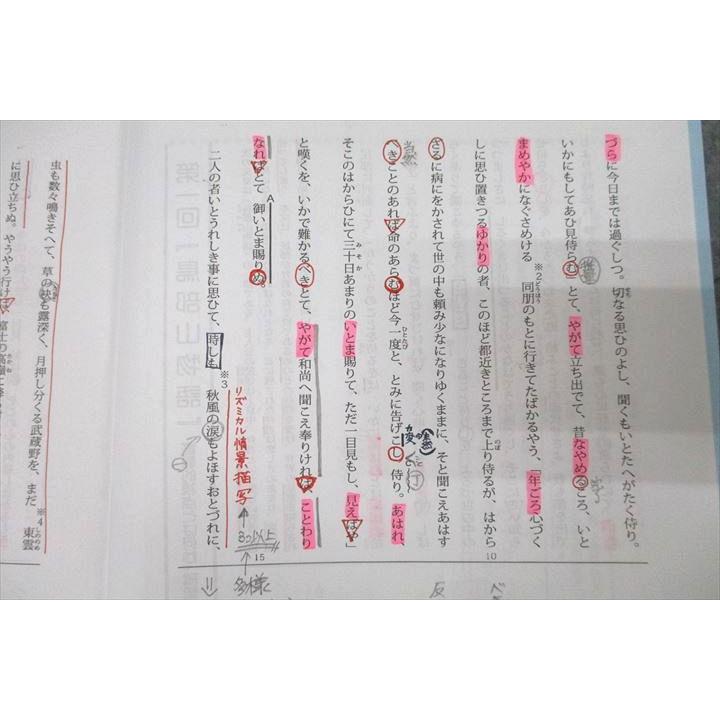 づらに今日までは過ぐしつ。切なる思ひのよし、聞くもいとたへがたく侍り。
いかにもしてあひ見侍らむとて、やがて立ち出でて、昔なやめるころ、いと
まめやかになぐさめける※2同朋のもとに行きてたばかるやう、「年ごろ心づく
しに思ひ置きつるゆかりの者、このほど都近きところまで上り侍るが、はから
ざるに病にをかされて世の中も頼み少なになりゆくままに、そと聞こえあはす
べきことのあれば命のあらむほど今一度と、とみに告げこし侍り。あはれ、
そこのはからひにて三十日あまりのいとま賜りて、ただ一目見もし、見えばや」
と嘆くを、いかで難かるべきとて、やがて和尚へ聞こえ奉りければ、ことわり
なればとて御いとま賜りぬ。
A
二人の者いとうれしき事に思ひて、時しも※3秋風の涙もよほすおとづれに、
リズミカル情景描写
3つ以上
多様に
当然
10
15
虫も数々鳴きそへて、草の袂も露深く、月押し分くる武蔵野を、まだ※4東雲
に思ひ立ちぬ。やうやう行けば、富士の高嶺に
反